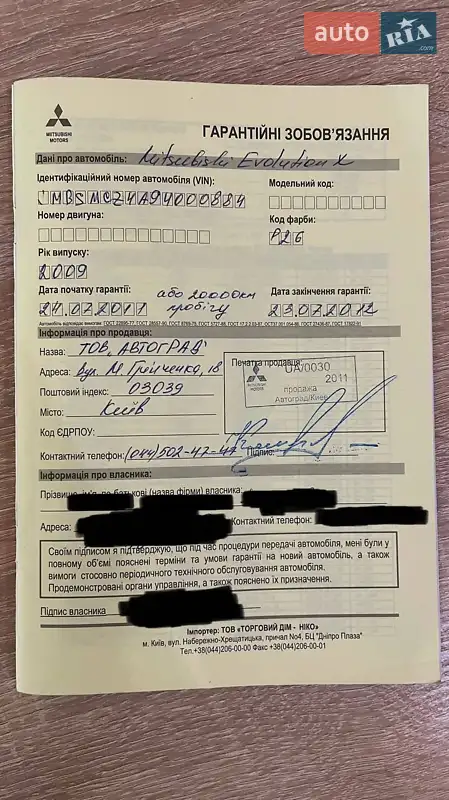 auto RIA.com
MITSUBISHI
MOTORS
ГАРАНТІЙНІ ЗОБОВ'ЯЗАННЯ
Дані про автомобіль: Mitsubishi Evolution X
Ідентифікаційний номер автомобіля (VIN):
Модельний код:
JMBSMCZ4A9U000884
Номер двигуна:
Код фарби:
P26
Рік випуску:
2009
Дата початку гарантії:
або 20000км
пробігу
Дата закінчення гарантії:
24.07.2011
23.07.2012
Інформація про продавця:
Назва: ТОВ "АВТОГРАД"
Печатка продавця:
Адреса: вул. М. Грінченко, 18
UA/0030
2011
Поштовий індекс: 03039
продажа
Автоград/Київ
Місто: Київ
Код ЄДРПОУ:
Контактний телефон: (044)502-42-47
Підпис:
Інформація про власника:
Прізвище, ім'я, по батькові (назва фірми) власника:
Адреса:
Контактний телефон:
Своїм підписом я підтверджую, що під час процедури передачі автомобіля, мені були у
повному об'ємі пояснені терміни та умови гарантії на новий автомобіль, а також
вимоги стосовно періодичного технічного обслуговування автомобіля.
Продемонстровані органи управління, а також пояснено їх призначення.
Підпис власника
Імпортер: ТОВ «ТОРГОВИЙ ДІМ - НІКО»
м. Київ, вул. Набережно-Хрещатицька, причал No4, БЦ "Дніпро Плаза"
Тел.+38(044)206-00-00 Факс +38(044)206-00-01